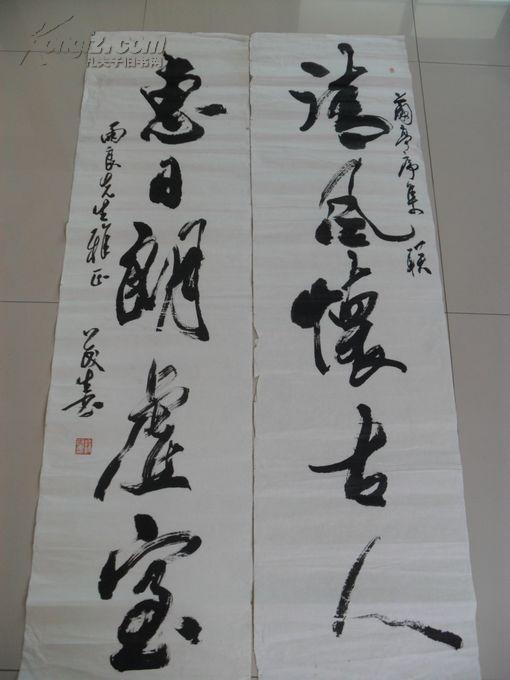 蘭亭序集联
清风懷古人
惠日朗虚室
雨良先生雅正
Kongfz.com
孔夫子旧书网